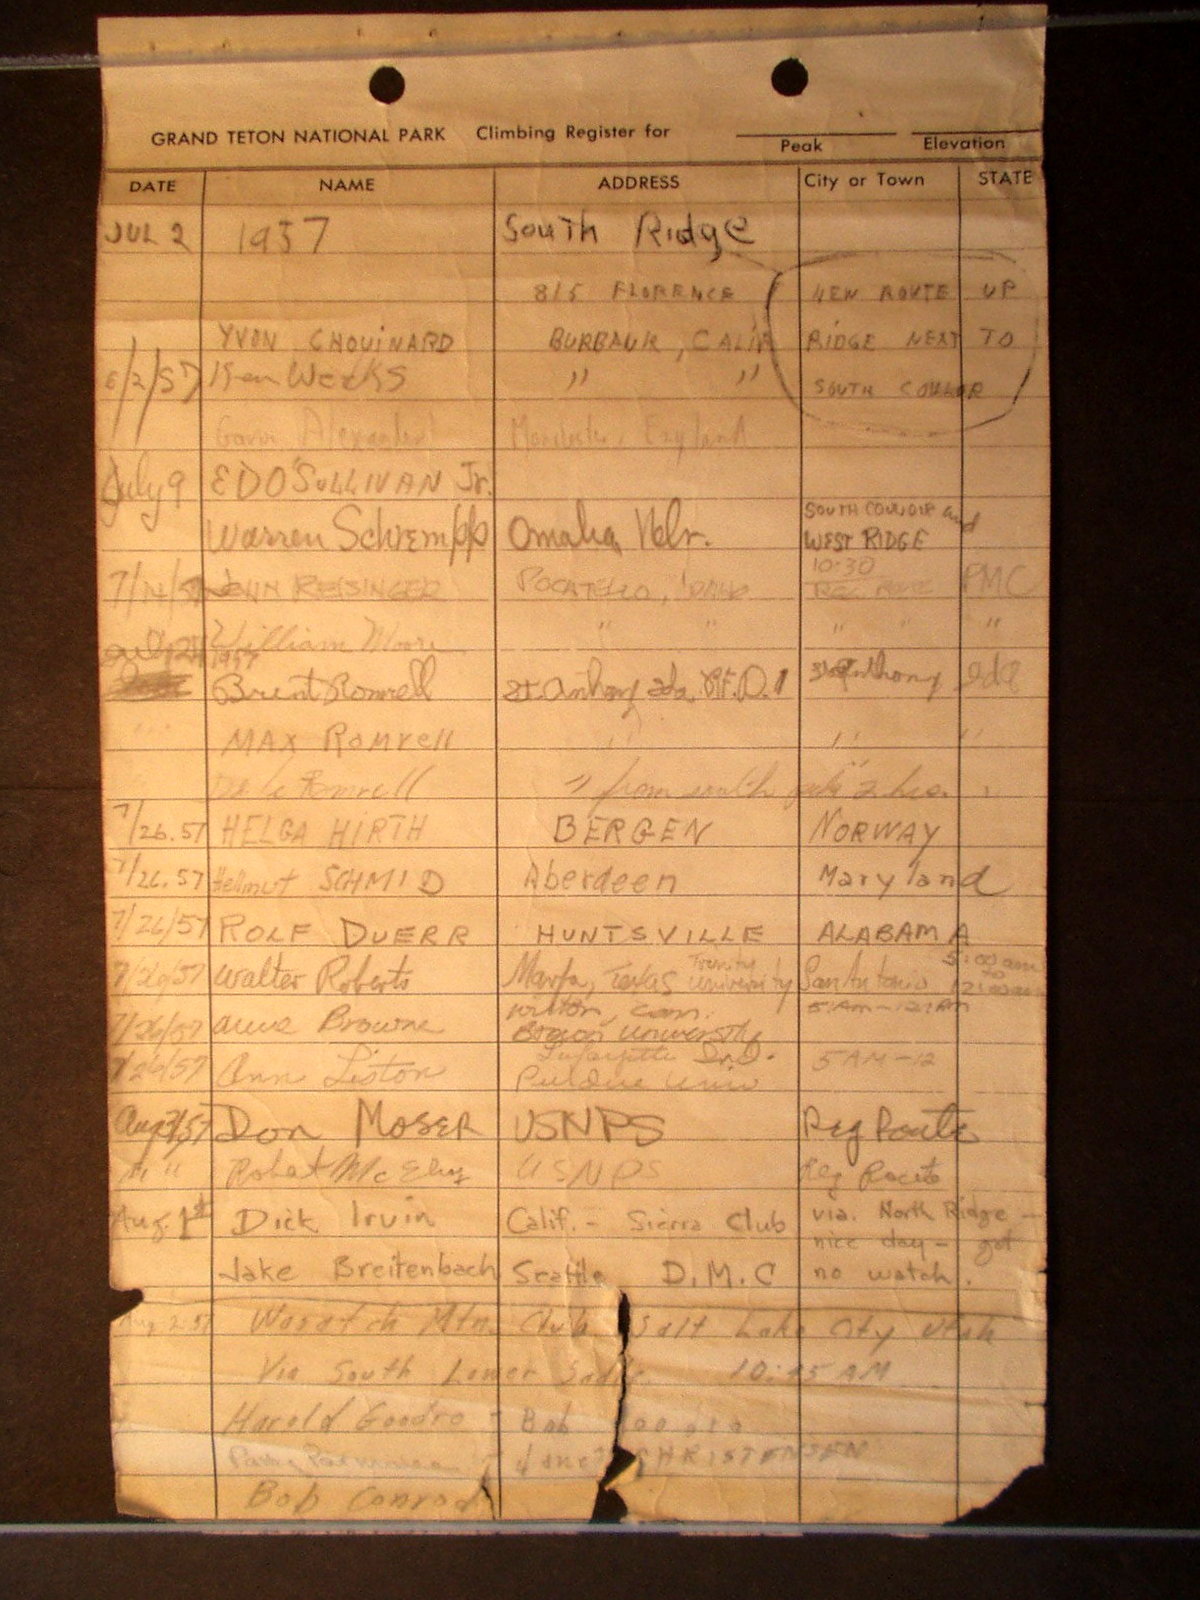 GRAND TETON NATIONAL PARK Climbing Register for
Peak Elevation
DATE NAME ADDRESS City or Town STATE
JUL 2 1957 South Ridge
815 FLORENCE NEW ROUTE UP
YVON CHOUINARD BURBANK, CALIF RIDGE NEXT TO
/2/57 Ken Weeks " " SOUTH COULOR
Gavin Alexander Manchester, England
July 9 ED O'SULLIVAN Jr.
Warren Schrempp Omaha Nebr. SOUTH COULOIR and
WEST RIDGE
10:30
7/14/57 JOHN REISINGER POCATELLO, IDAHO REG. ROUTE PMC
William Moore " " " " "
1957
Brent Romrell St. Anthony Ida R.F.D. 1 St Anthony Ida
" MAX Romrell " " "
Dale Romrell " from south 2 hrs. "
7/26.57 HELGA HIRTH BERGEN NORWAY
7/26.57 Helmut SCHMID Aberdeen Maryland
7/26/57 ROLF DUERR HUNTSVILLE ALABAMA
7/26/57 Walter Roberts Marfa, Texas Trinity University San Antonio 5:00 am to 12:00
7/26/57 Anne Browne Wilton, Conn. 5 AM-12:
University
7/26/57 Ann Liston Lafayette Ind. 5 AM-12
Purdue Univ
Aug /57 Don MOSER USNPS Reg Route
" " Robert McElroy USNPS Reg Route
Aug. 1st Dick Irvin Calif. - Sierra Club via. North Ridge -
nice day - got
Jake Breitenbach Seattle D.M.C no watch.
Aug 2 57 Wasatch Mtn. Club Salt Lake City Utah
Via South Lower Saddle 10:45 AM
Harold Goodro - Bob Goodro
CHRISTENSEN
Bob Conrod